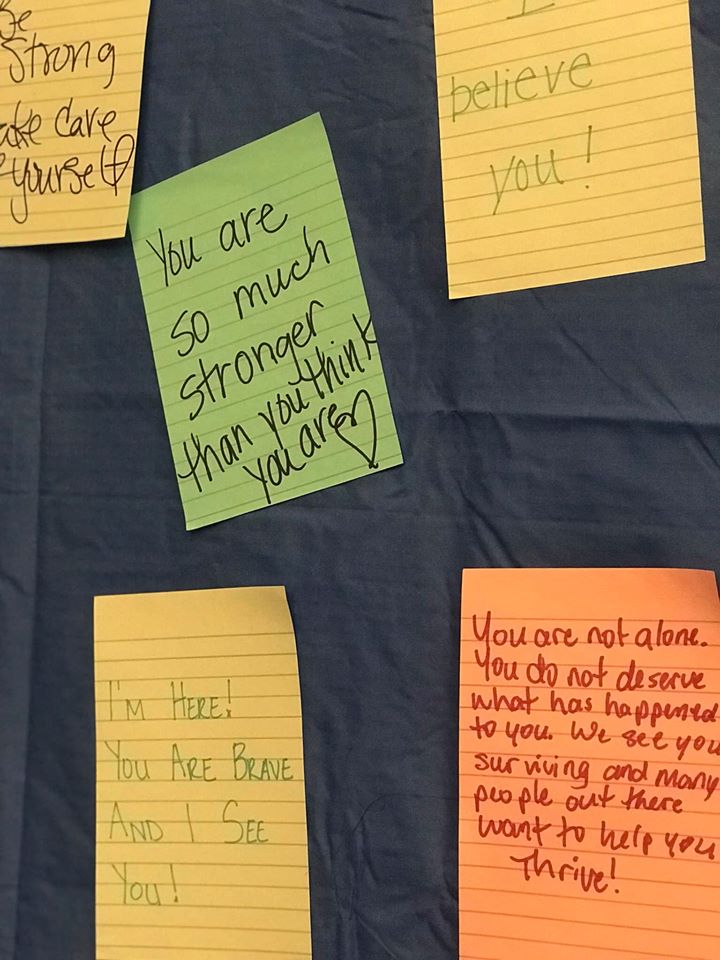 Be
Strong
Care
yourself
I
believe
you!
You are
so much
stronger
than you think
you are
I'M HERE!
YOU ARE BRAVE
AND I SEE
YOU!
You are not alone.
You do not deserve
what has happened
to you. We see you
surviving and many
people out there
want to help you
Thrive!